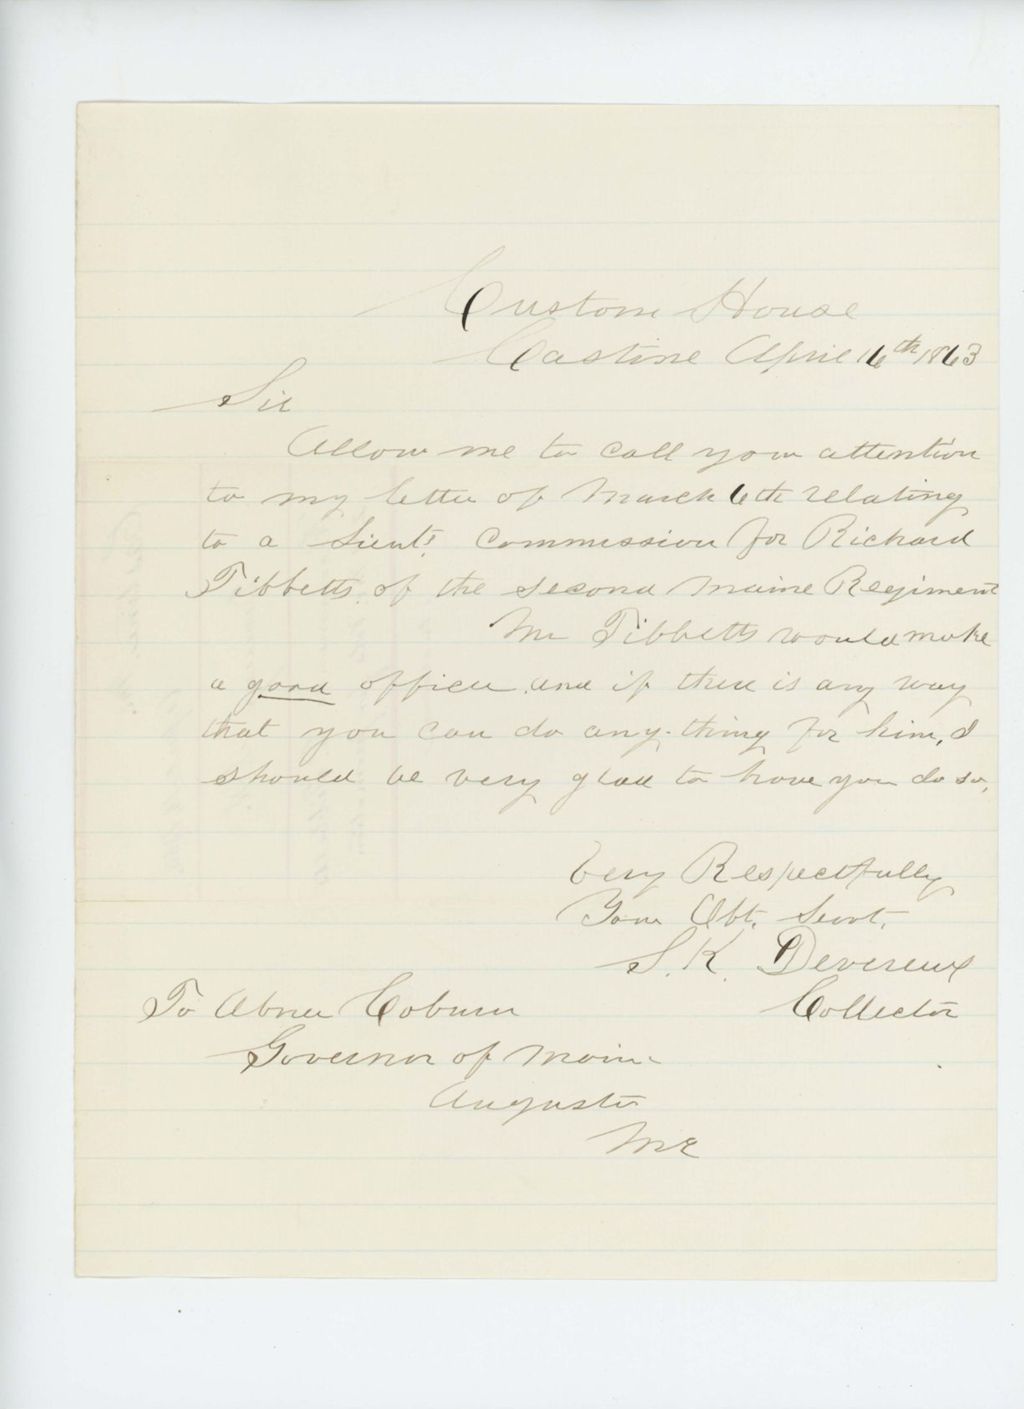 Custom House
Castine April 16th 1863
Sir
Allow me to call your attention
to my letter of March 6th relating
to a Lieut's. Commission for Richard
Tibbetts, of the Second Maine Regiment
Mr Tibbetts would make
a good officer, and if there is any way
that you can do any-thing for him, I
should be very glad to have you do so.
Very Respectfully
Your Obt. Servt.
S. K. Devereux
Collector
To Abner Coburn
Governor of Maine
Augusta
Me